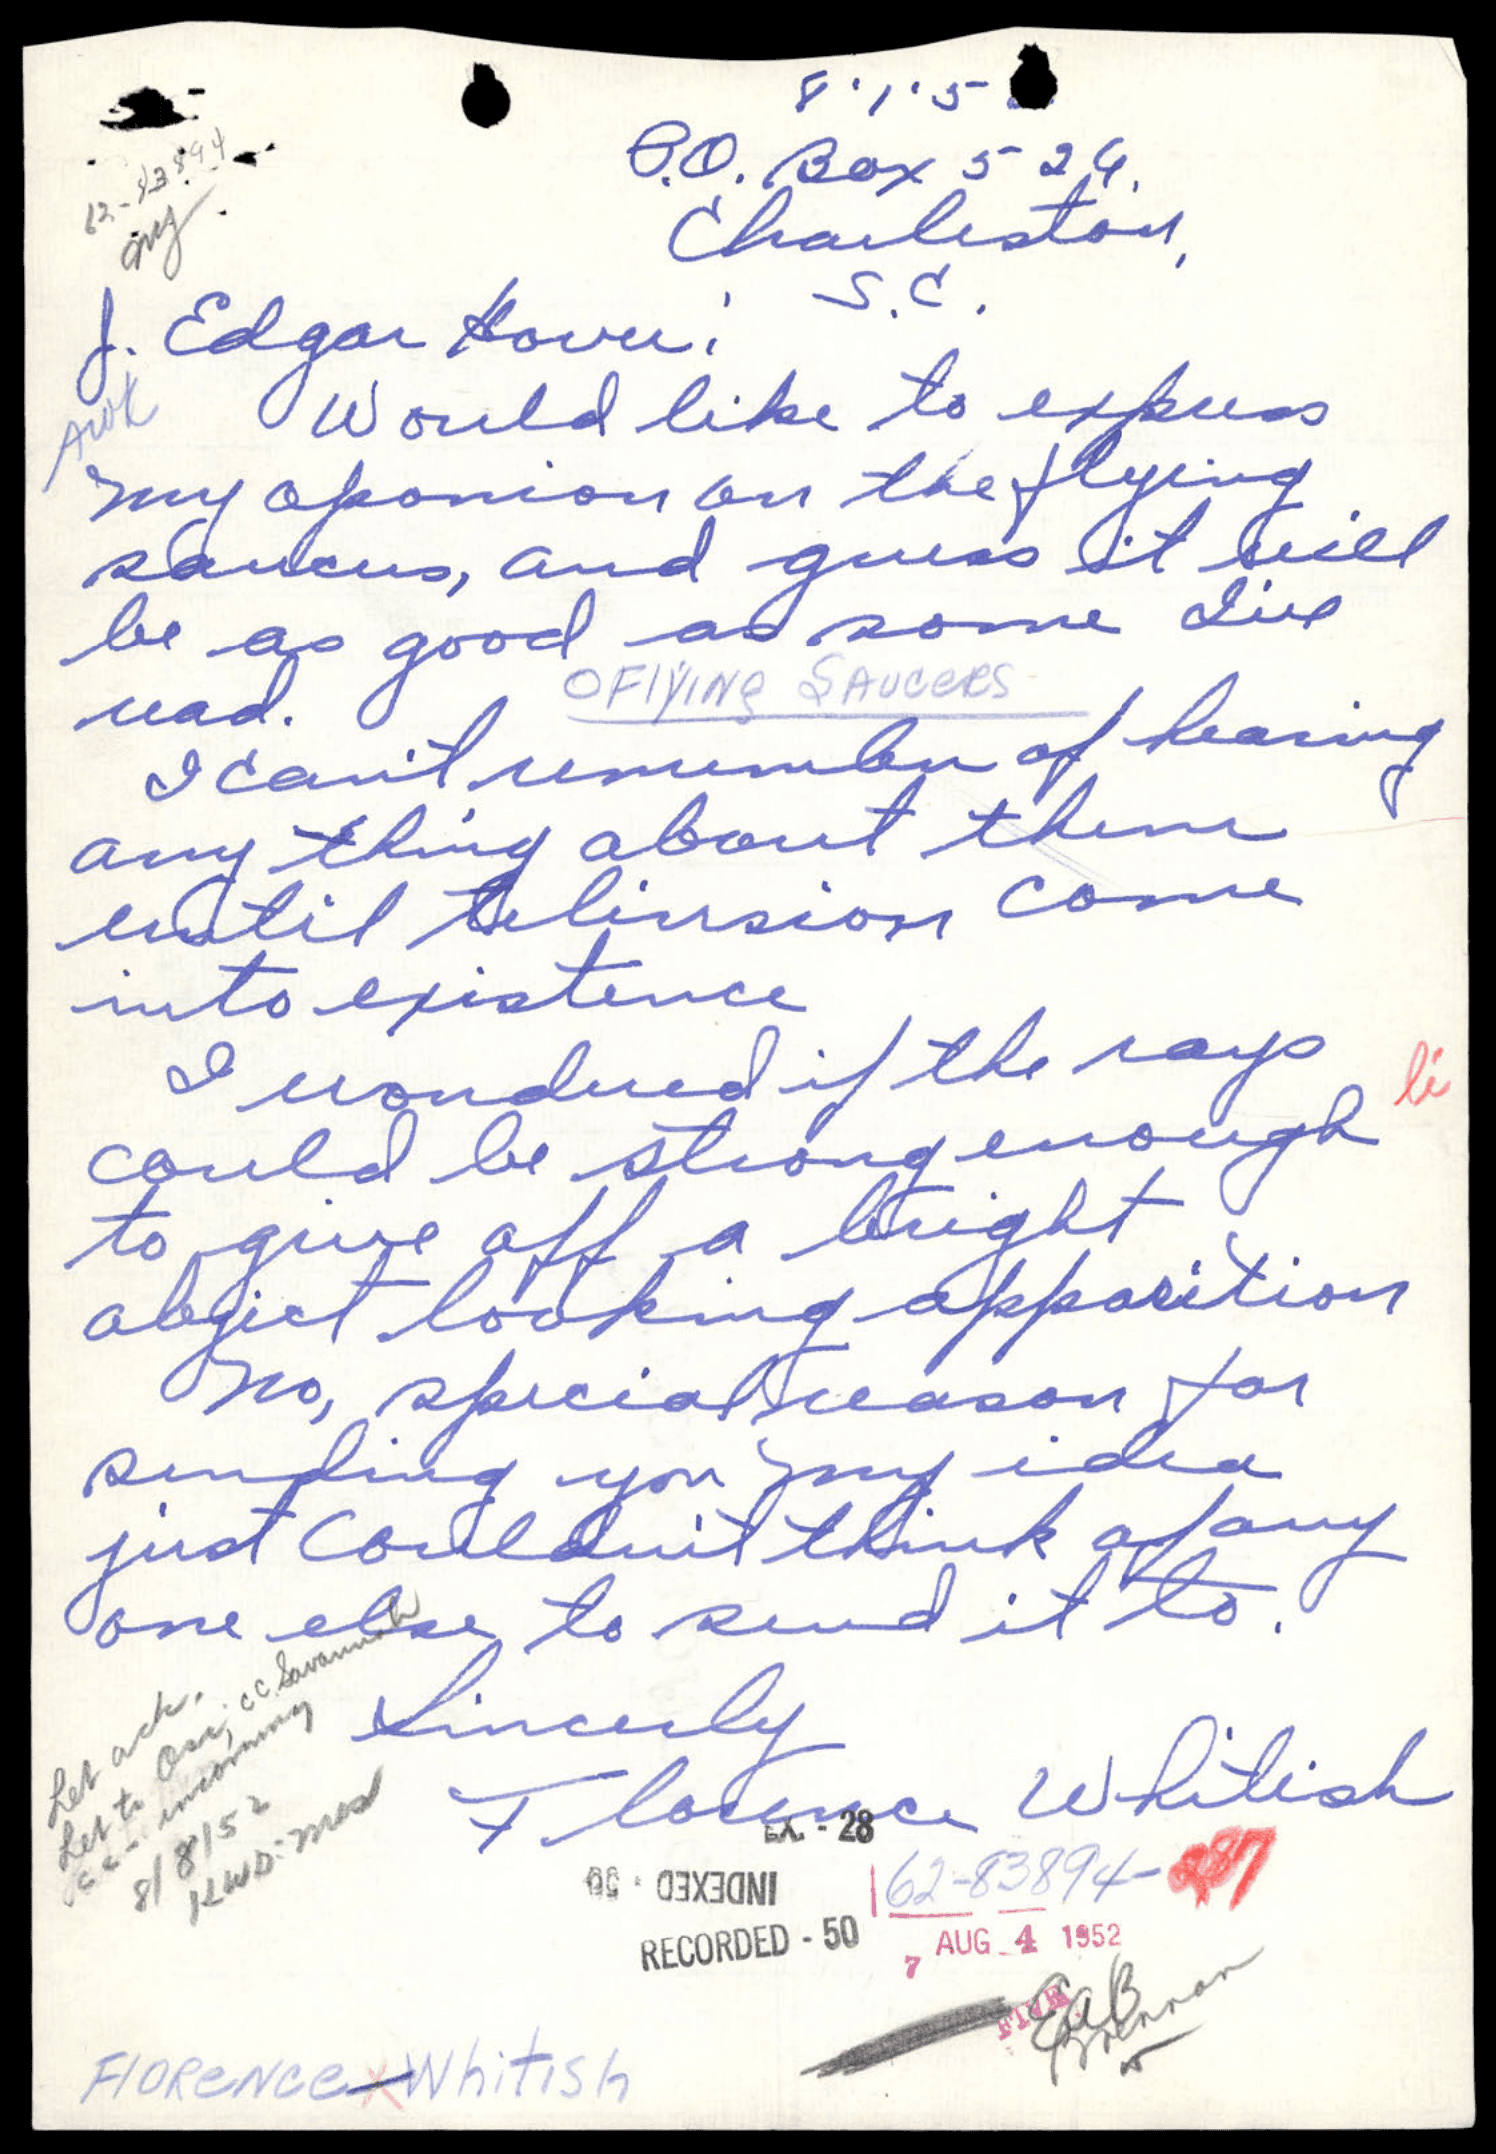 8.1.5
P.O. Box 526.
Charleston,
S.C.
62-83894
J. Edgar Hoover:
Would like to express
my oponion on the flying
saucers, and guess it will
be as good as some I've
read.
OFlYING SAUCERS
I can't rememember of hearing
any thing about them
until television come
into existence
I wondered if the rays
could be strong enough
to give off a bright
object looking apparition
No, special reason for
sending you my idea
just couldn't think of any
one else to send it to.
Sincerly
Florence Whitish
Let ack.
Let to OSI, cc Savannah
cc - incoming
8/8/52
KWD:mes
EX. - 28
INDEXED - 50
62-83894-287
RECORDED - 50
7 AUG 4 1952
FIVE
EAB
Brennan
FlORENCE Whitish